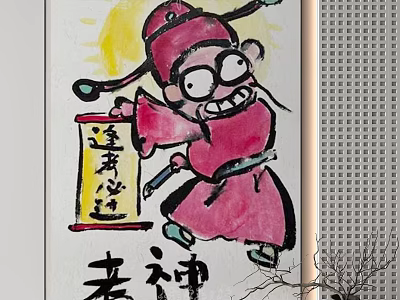 逢考必过
考神